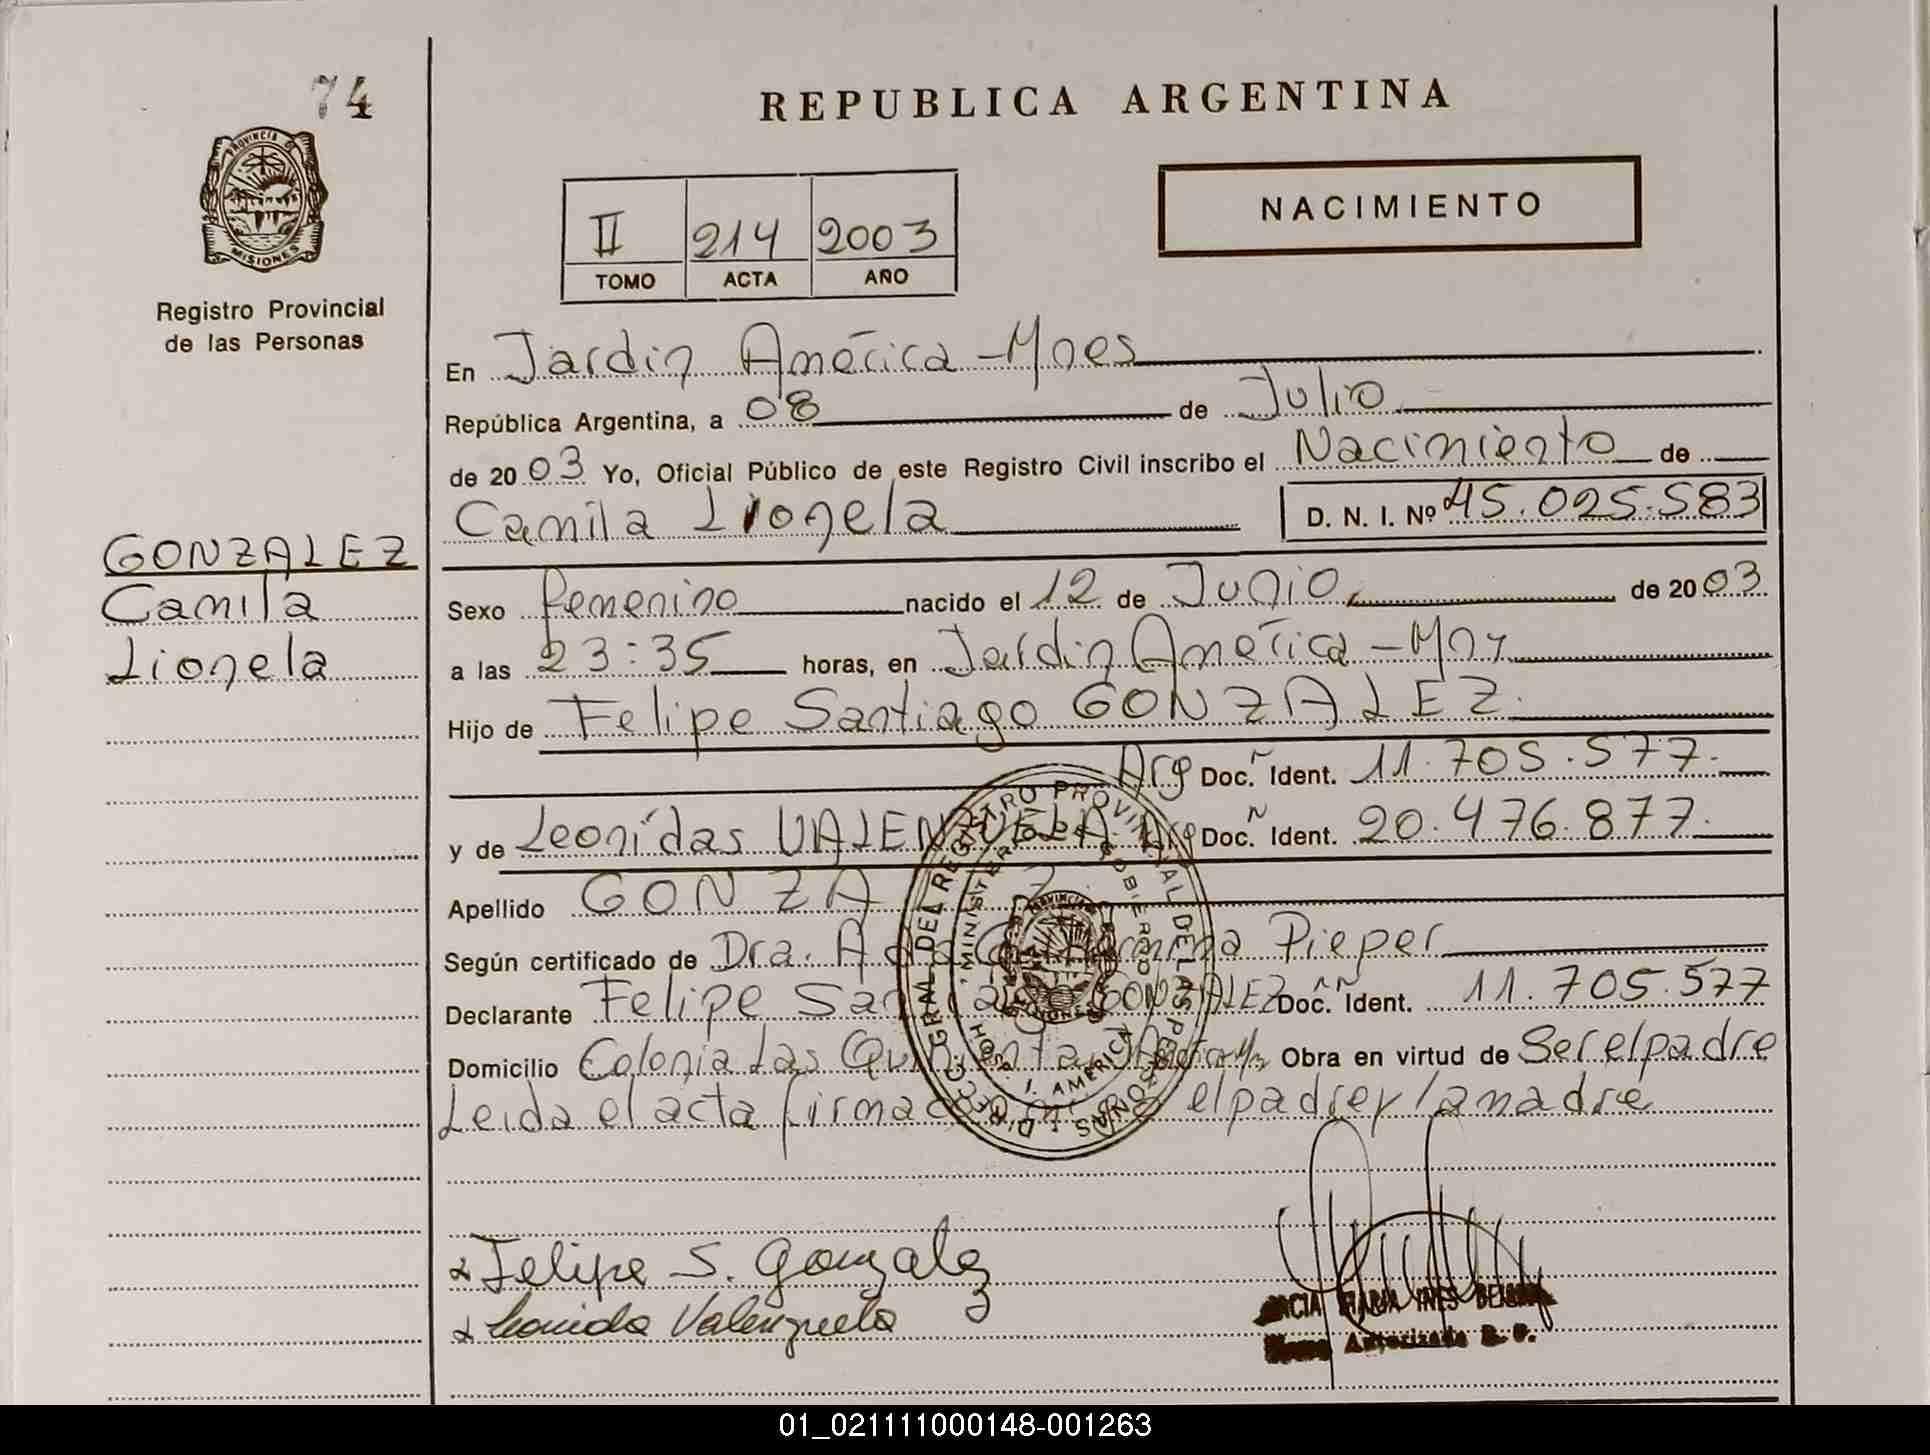 74
REPUBLICA ARGENTINA
PROVINCIA DE
MISIONES
NACIMIENTO
II 214 2003
TOMO ACTA AÑO
Registro Provincial
de las Personas
En Jardin América - Mnes
República Argentina, a 08 de Julio
de 2003 Yo, Oficial Público de este Registro Civil inscribo el Nacimiento de
Camila Lionela D. N. I. Nº 45.025.583
GONZALEZ
Camila
Lionela
Sexo femenino nacido el 12 de Junio de 2003
a las 23:35 horas, en Jardin América - Mny
Hijo de Felipe Santiago GONZALEZ
Arg Doc. Ident. 11.705.577.
y de Leonídas VALENZUELA Arg Doc. Ident. 20.476.877.
Apellido GONZA Z
Según certificado de Dra. Pieper
Declarante Felipe Santiago GONZALEZ Doc. Ident. 11.705.577
Domicilio Colonia Las Obra en virtud de Ser el padre
Leida el acta firma el padre y la madre
DIREC. GRAL DEL REGISTRO PROVINCIAL DE LAS PERSONAS
MINISTERIO DE GOBIERNO
HOSP. J. AMERICA
Felipe S. Gonzalez
Leonida Valenzuela
Autorizada
01_021111000148-001263